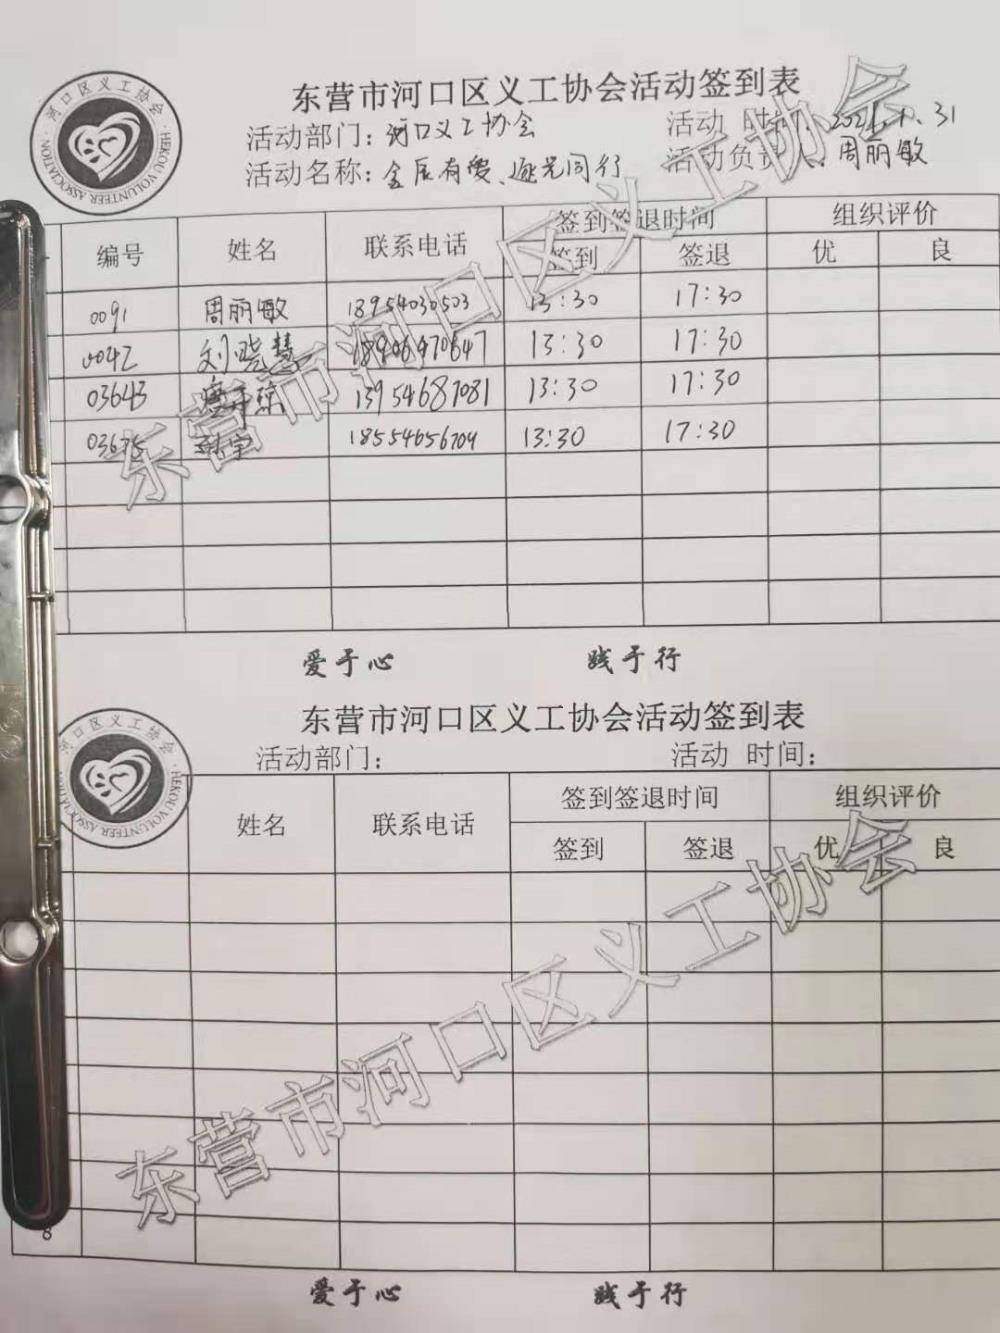 东营市河口区义工协会活动签到表
活动部门：河口义工协会 活动 时
活动名称：金辰有爱、逐光同行 活动负责 周丽敏
编号 姓名 联系电话 签到签退时间 组织评价
签到 签退 优 良
0091 周丽敏 18954030503 13:30 17:30
0042 刘晓慧 18906470647 13:30 17:30
03643 13954687081 13:30 17:30
03675 18554656704 13:30 17:30
爱于心 践于行
东营市河口区义工协会活动签到表
活动部门： 活动 时间：
姓名 联系电话 签到签退时间 组织评价
签到 签退 优 良
8
爱于心 践于行
河口区义工协会
HEKOU VOLUNTEER ASSOCIATION
河口区义工协会
HEKOU VOLUNTEER ASSOCIATION
东营市河口区义工协会
东营市河口区义工协会